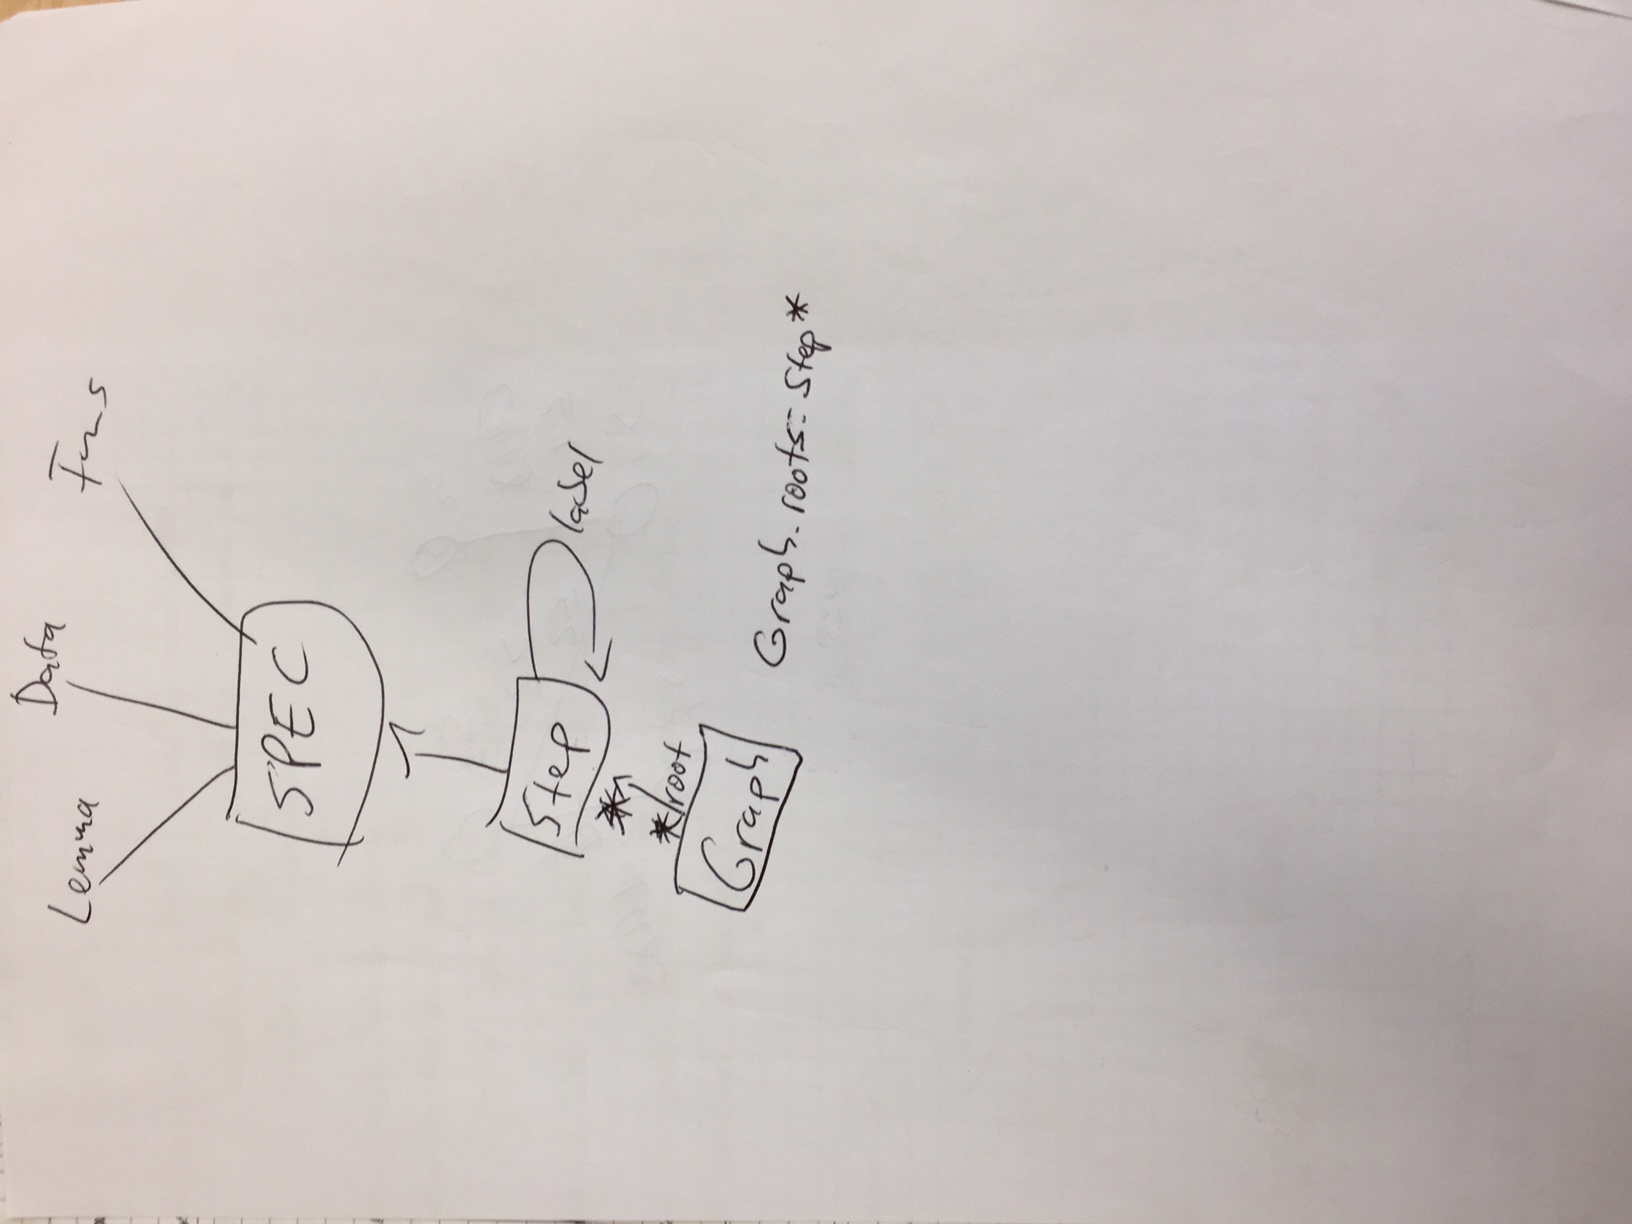 Data
Lemma
Funs
SPEC
Step
label
*
* root
Graph
Graph.roots: Step*